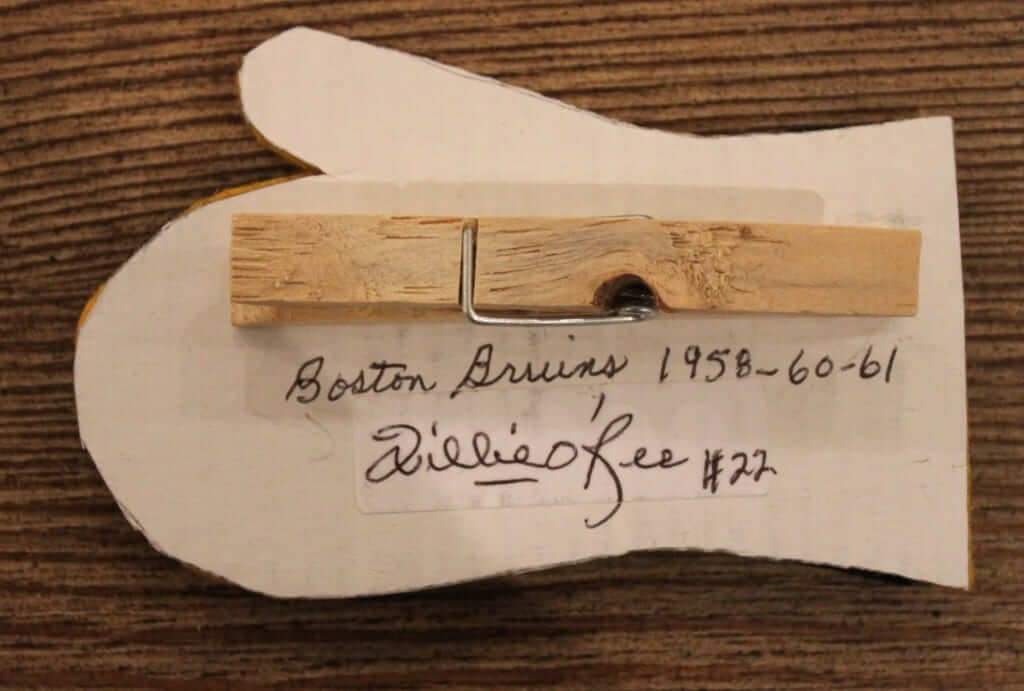 Boston Bruins 1958-60-61
Willie O'Ree #22